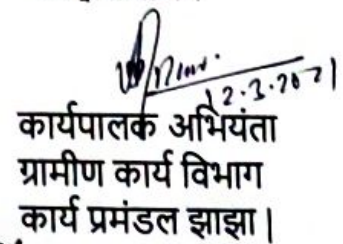 12.3.2021
कार्यपालक अभियंता
ग्रामीण कार्य विभाग
कार्य प्रमंडल झाझा |